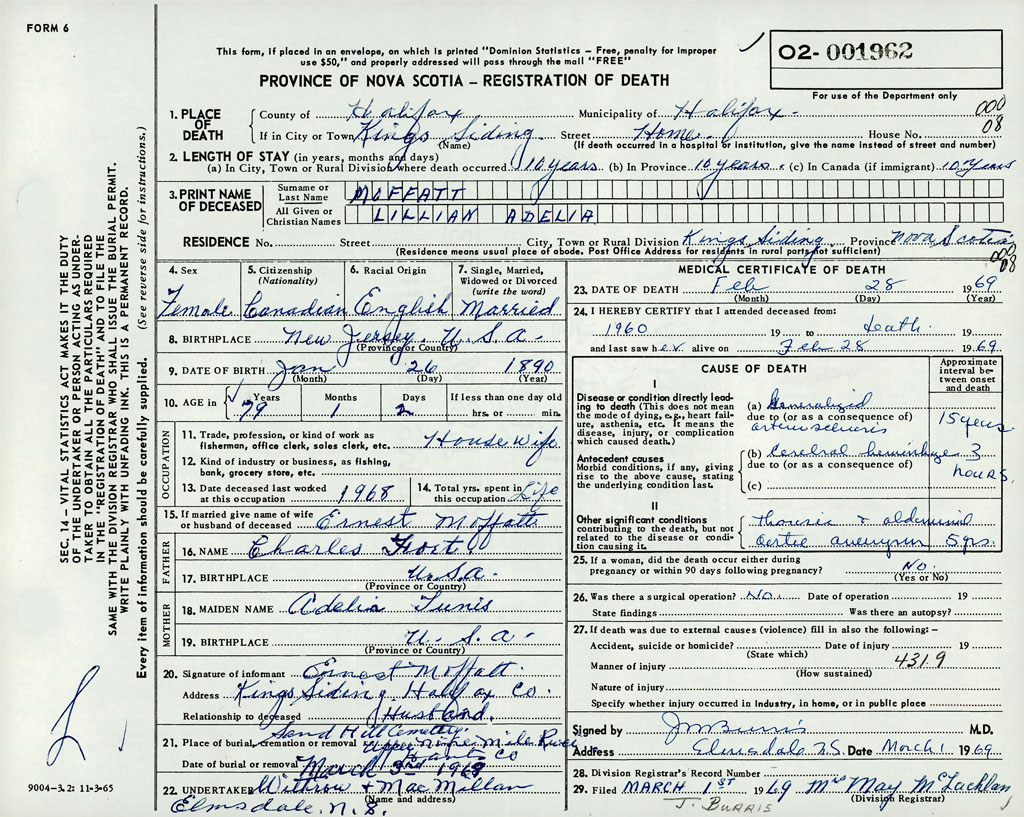 FORM 6
This form, if placed in an envelope, on which is printed "Dominion Statistics – Free, penalty for improper
use $50," and properly addressed will pass through the mail "FREE"
PROVINCE OF NOVA SCOTIA – REGISTRATION OF DEATH
02- 001962
For use of the Department only
000
08
1. PLACE OF DEATH County of Halifax Municipality of Halifax
If in City or Town Kings Siding (Name) Street Home House No.
(If death occurred in a hospital or institution, give the name instead of street and number)
2. LENGTH OF STAY (in years, months and days)
(a) In City, Town or Rural Division where death occurred 10 years (b) In Province 10 years (c) In Canada (if immigrant) 10 years
3. PRINT NAME OF DECEASED Surname or Last Name MOFFATT
All Given or Christian Names LILLIAN ADELIA
RESIDENCE No. Street City, Town or Rural Division Kings Siding Province Nova Scotia
(Residence means usual place of abode. Post Office Address for residents in rural parts not sufficient)
000
08
4. Sex Female
5. Citizenship (Nationality) Canadian
6. Racial Origin English
7. Single, Married, Widowed or Divorced (write the word) Married
8. BIRTHPLACE New Jersey U.S.A.
(Province or Country)
9. DATE OF BIRTH Jan 26 1890
(Month) (Day) (Year)
10. AGE in Years 79 Months 1 Days 2 If less than one day old hrs. or min.
OCCUPATION
11. Trade, profession, or kind of work as fisherman, office clerk, sales clerk, etc. House wife
12. Kind of industry or business, as fishing, bank, grocery store, etc.
13. Date deceased last worked at this occupation 1968
14. Total yrs. spent in this occupation Life
15. If married give name of wife or husband of deceased Ernest Moffatt
FATHER
16. NAME Charles
17. BIRTHPLACE U.S.A.
(Province or Country)
MOTHER
18. MAIDEN NAME Adelia Tunis
19. BIRTHPLACE U.S.A.
(Province or Country)
20. Signature of informant Ernest Moffatt
Address Kings Siding Halifax Co.
Relationship to deceased Husband.
Sand Hill Cemetery
21. Place of burial, cremation or removal Upper Nine Mile River
Hants Co
Date of burial or removal March 3rd 1969
22. UNDERTAKER Withrow & MacMillan
(Name and address)
Elmsdale, N.S.
MEDICAL CERTIFICATE OF DEATH
23. DATE OF DEATH Feb 28 1969
(Month) (Day) (Year)
24. I HEREBY CERTIFY that I attended deceased from:
1960 19 to death 19
and last saw her alive on Feb 28 1969
CAUSE OF DEATH
Approximate interval between onset and death
I
Disease or condition directly leading to death (This does not mean the mode of dying, e.g., heart failure, asthenia, etc. It means the disease, injury, or complication which caused death.)
(a) Generalized
due to (or as a consequence of)
15 years
Antecedent causes
Morbid conditions, if any, giving rise to the above cause, stating the underlying condition last.
(b) Cerebral 3 hours
due to (or as a consequence of)
(c)
II
Other significant conditions
contributing to the death, but not related to the disease or condition causing it.
5 yrs.
25. If a woman, did the death occur either during pregnancy or within 90 days following pregnancy? No.
(Yes or No)
26. Was there a surgical operation? No. Date of operation 19
State findings Was there an autopsy?
27. If death was due to external causes (violence) fill in also the following:–
Accident, suicide or homicide? Date of injury 19
(State which)
Manner of injury 431.9
(How sustained)
Nature of injury
Specify whether injury occurred in industry, in home, or in public place
Signed by M.D.
Address Elmsdale N.S. Date March 1 1969
28. Division Registrar's Record Number
29. Filed MARCH 1ST 1969 Mrs May McLachlan
(Division Registrar)
J. BURRIS
SEC. 14 – VITAL STATISTICS ACT MAKES IT THE DUTY
OF THE UNDERTAKER OR PERSON ACTING AS UNDER-
TAKER TO OBTAIN ALL THE PARTICULARS REQUIRED
IN THE "REGISTRATION OF DEATH" AND TO FILE THE
SAME WITH THE DIVISION REGISTRAR WHO SHALL ISSUE BURIAL PERMIT.
WRITE PLAINLY WITH UNFADING INK. THIS IS A PERMANENT RECORD.
Every item of information should be carefully supplied. (See reverse side for instructions.)
9004-3.2: 11-3-65